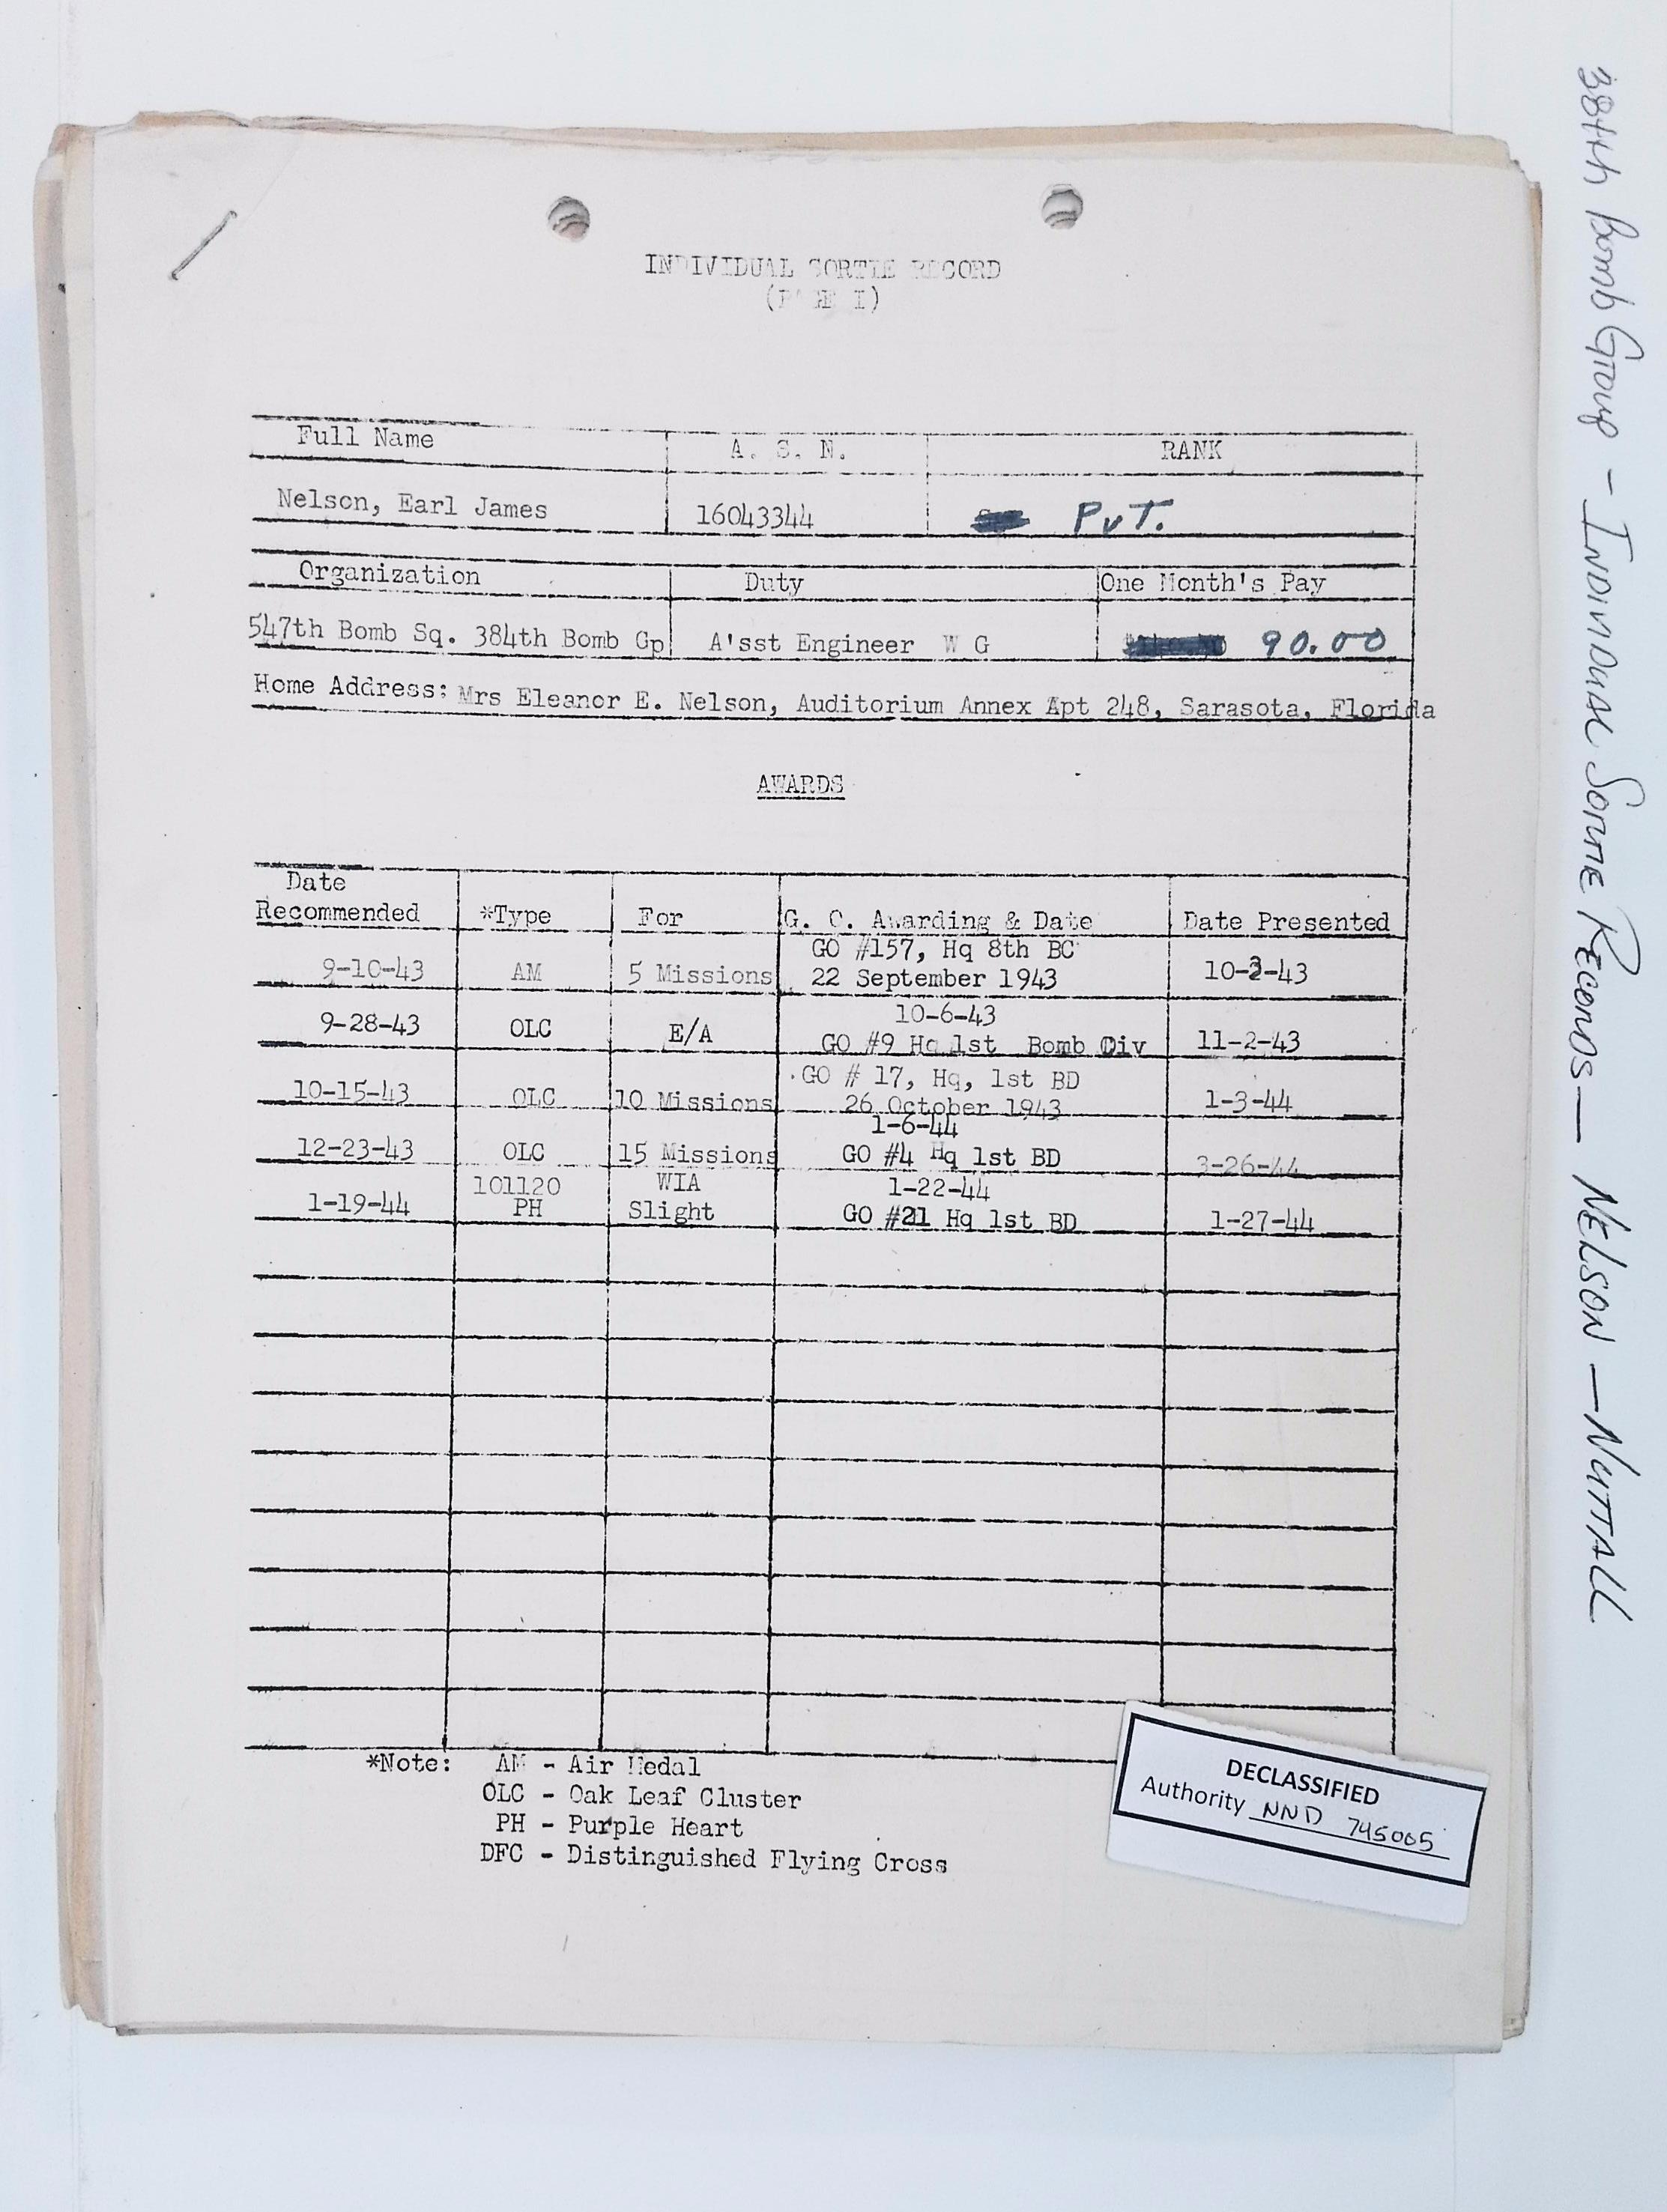 INDIVIDUAL SORTIE RECORD
(PAGE I)
Full Name A. S. N. RANK
Nelson, Earl James 16043344 PvT.
Organization Duty One Month's Pay
547th Bomb Sq. 384th Bomb Gp A'sst Engineer W G 90.00
Home Address: Mrs Eleanor E. Nelson, Auditorium Annex Apt 248, Sarasota, Florida
AWARDS
Date
Recommended *Type For G. O. Awarding & Date Date Presented
GO #157, Hq 8th BC
9-10-43 AM 5 Missions 22 September 1943 10-2-43
10-6-43
9-28-43 OLC E/A GO #9 Hq 1st Bomb Div 11-2-43
GO # 17, Hq, 1st BD
10-15-43 OLC 10 Missions 26 October 1943 1-3-44
1-6-44
12-23-43 OLC 15 Missions GO #4 Hq 1st BD 3-26-44
101120 WIA 1-22-44
1-19-44 PH Slight GO #21 Hq 1st BD 1-27-44
*Note: AM - Air Medal
OLC - Oak Leaf Cluster
PH - Purple Heart
DFC - Distinguished Flying Cross
DECLASSIFIED
Authority NND 745005
384th Bomb Group - INDIVIDUAL SORTIE RECORDS— NELSON — NUTTALL